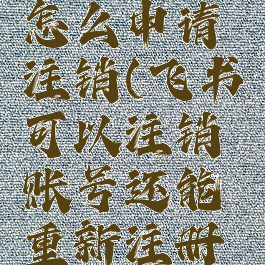 怎么申请
注销(飞书
可以注销
账号还能
重新注册